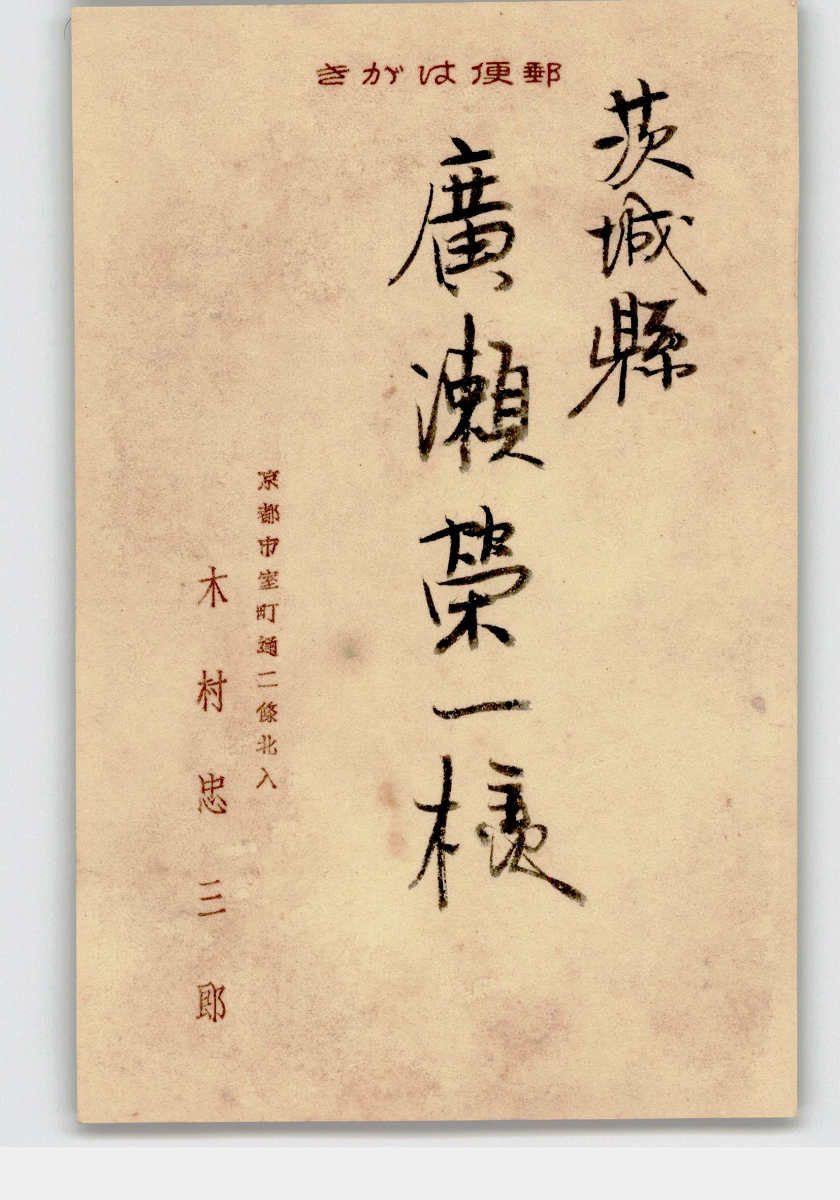 郵便はがき
茨城縣
廣瀬榮一様
京都市室町通二條北入
木村忠三郎